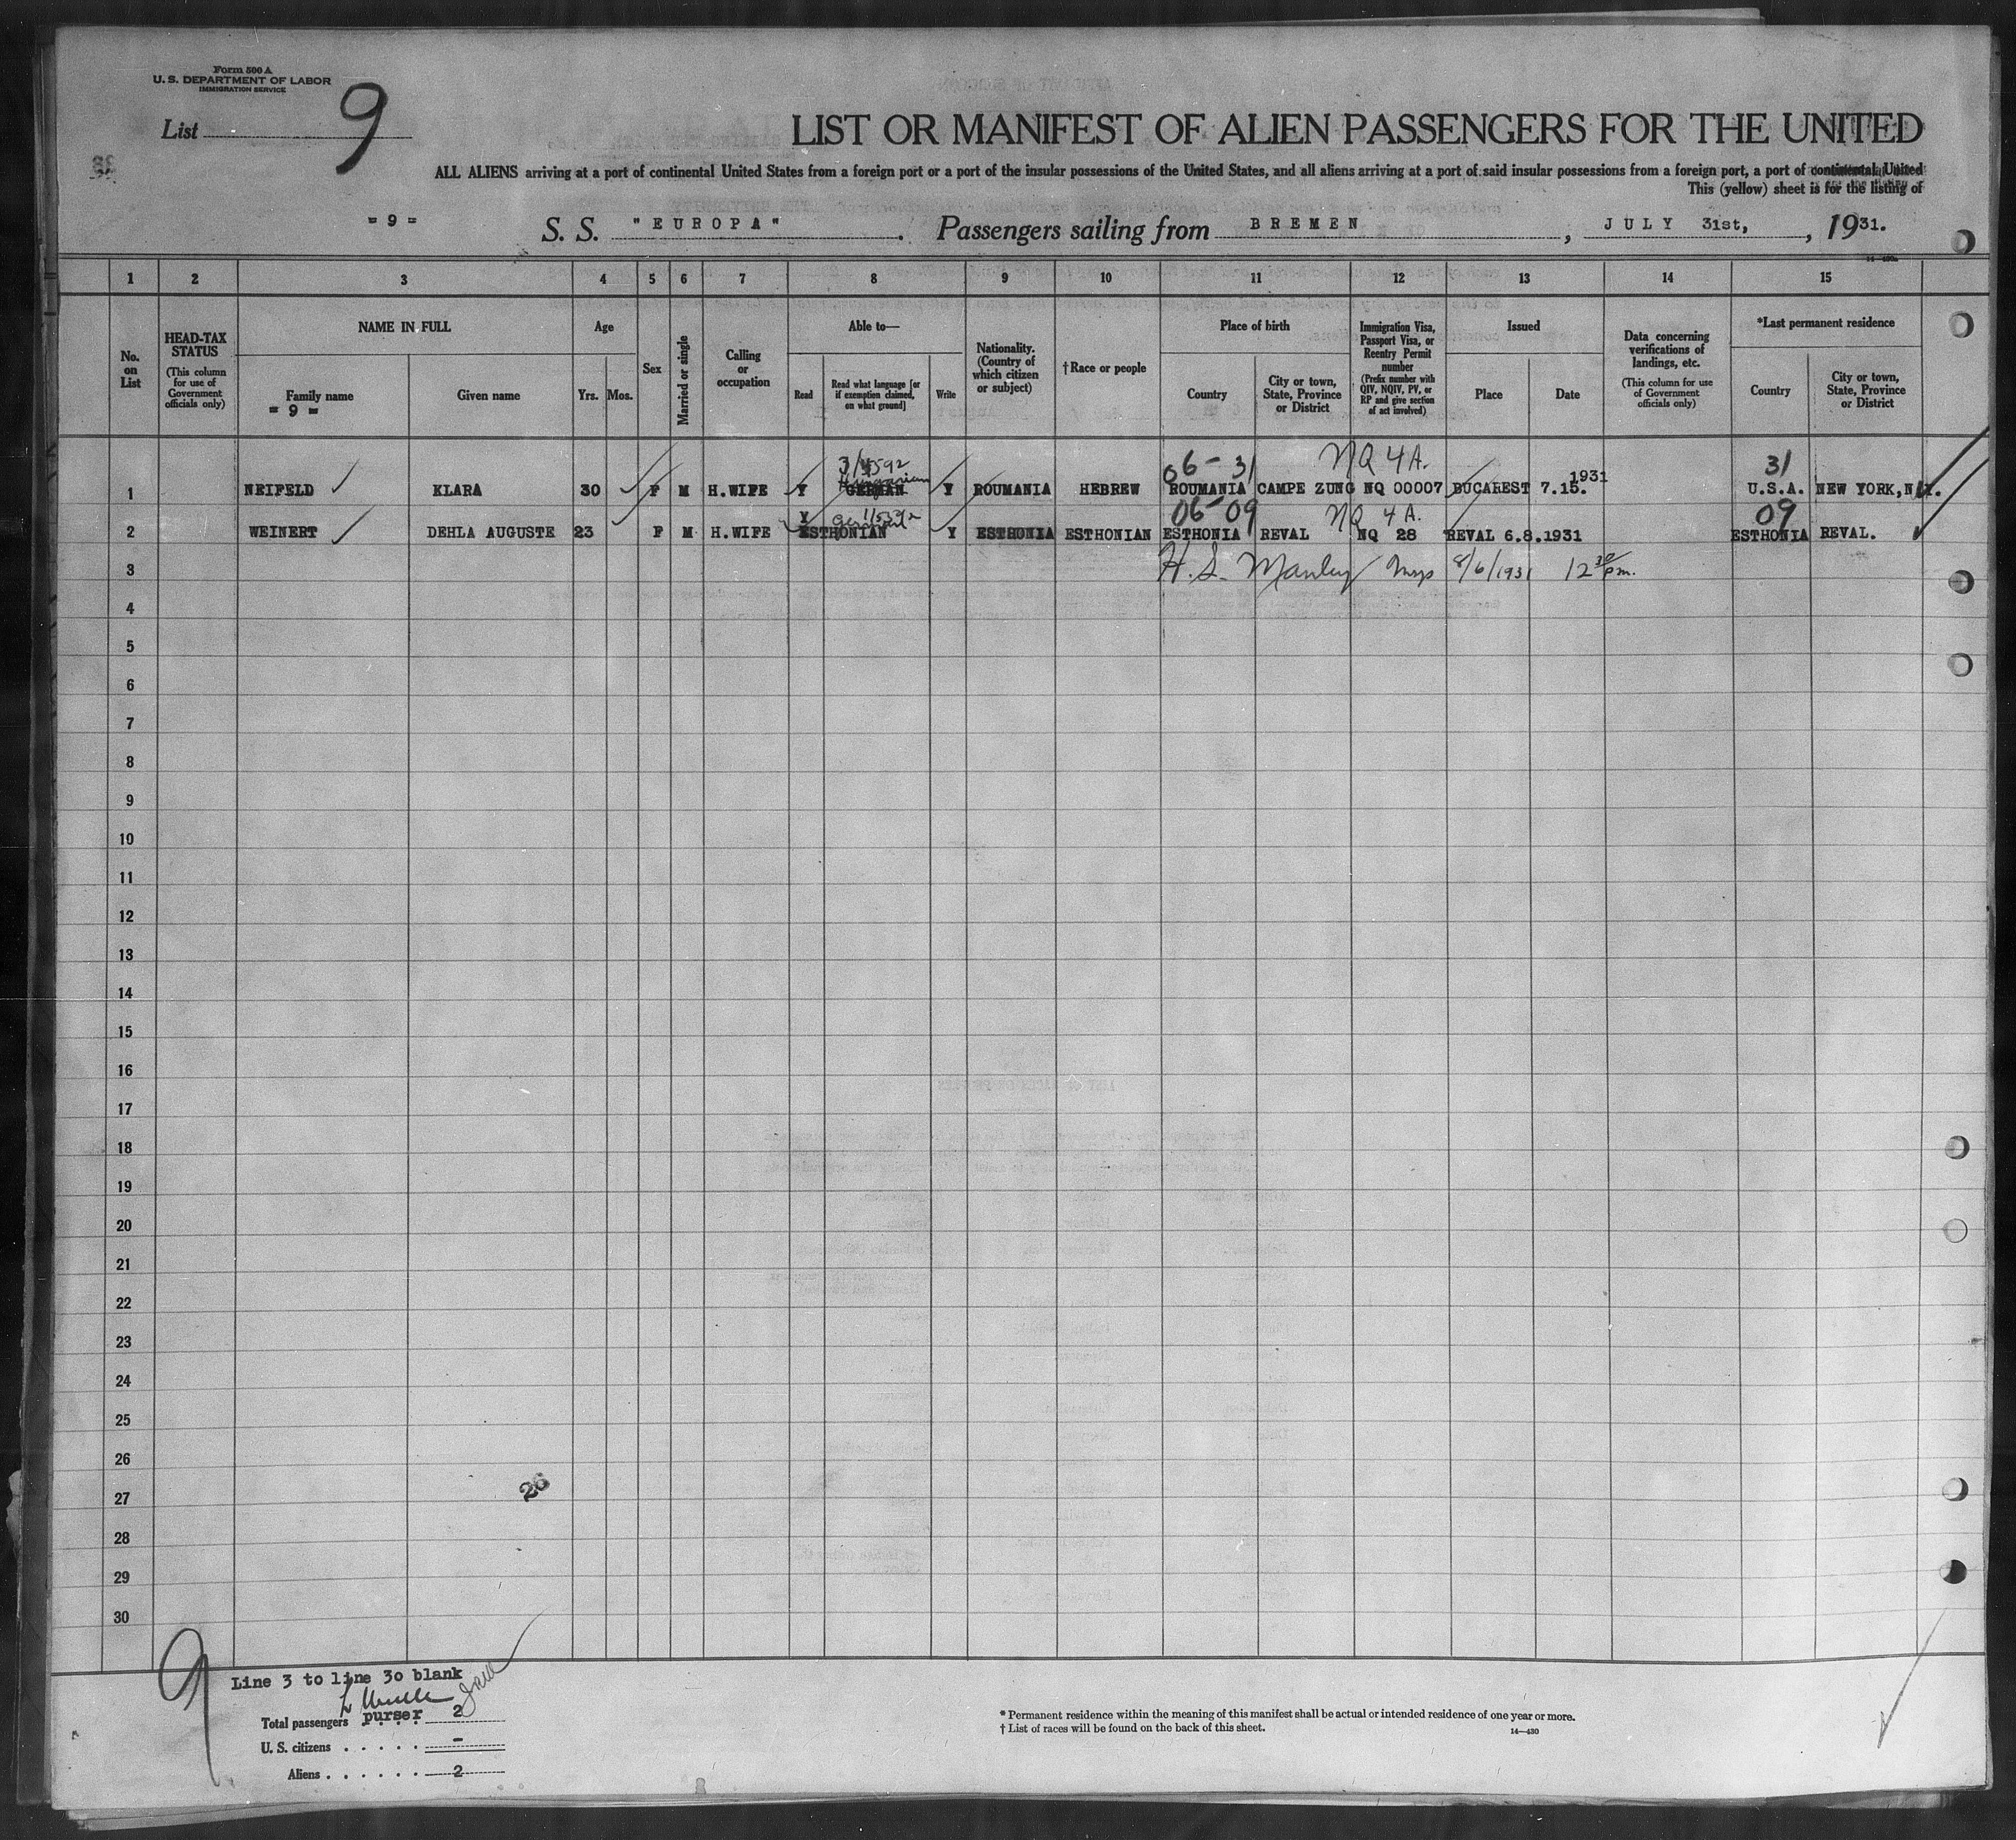 Form 500 A
U. S. DEPARTMENT OF LABOR
IMMIGRATION SERVICE
List 9
LIST OR MANIFEST OF ALIEN PASSENGERS FOR THE UNITED
ALL ALIENS arriving at a port of continental United States from a foreign port or a port of the insular possessions of the United States, and all aliens arriving at a port of said insular possessions from a foreign port, a port of continental United
This (yellow) sheet is for the listing of
= 9 = S. S. "EUROPA" . Passengers sailing from BREMEN , JULY 31st, , 1931.
1 2 3 4 5 6 7 8 9 10 11 12 13 14 15
No. on List
HEAD-TAX STATUS
(This column for use of Government officials only)
NAME IN FULL
Family name
= 9 =
Given name
Age
Yrs. Mos.
Sex
Married or single
Calling or occupation
Able to—
Read
Read what language [or if exemption claimed, on what ground]
Write
Nationality. (Country of which citizen or subject)
† Race or people
Place of birth
Country
City or town, State, Province or District
Immigration Visa, Passport Visa, or Reentry Permit number
(Prefix number with QIV, NQIV, PV, or RP and give section of act involved)
Issued
Place
Date
Data concerning verifications of landings, etc.
(This column for use of Government officials only)
*Last permanent residence
Country
City or town, State, Province or District
06-31 NQ 4A. 31
1 NEIFELD KLARA 30 F M H.WIFE Y GERMAN Hungarian Y ROUMANIA HEBREW ROUMANIA CAMPE ZUNG NQ 00007 BUCAREST 7.15. 1931 U.S.A. NEW YORK, N.Y.
German 06-09 NQ 4A. 09
2 WEINERT DEHLA AUGUSTE 23 F M H.WIFE Y ESTHONIAN Y ESTHONIA ESTHONIAN ESTHONIA REVAL NQ 28 REVAL 6.8.1931 ESTHONIA REVAL.
3 H. S. Manley 8/6/1931 12 30 pm.
4
5
6
7
8
9
10
11
12
13
14
15
16
17
18
19
20
21
22
23
24
25
26
27
28
29
30
26
9
Line 3 to line 30 blank
purser
Total passengers . . . . 2
U. S. citizens . . . . . -
Aliens . . . . . . 2
* Permanent residence within the meaning of this manifest shall be actual or intended residence of one year or more.
† List of races will be found on the back of this sheet. 14—430